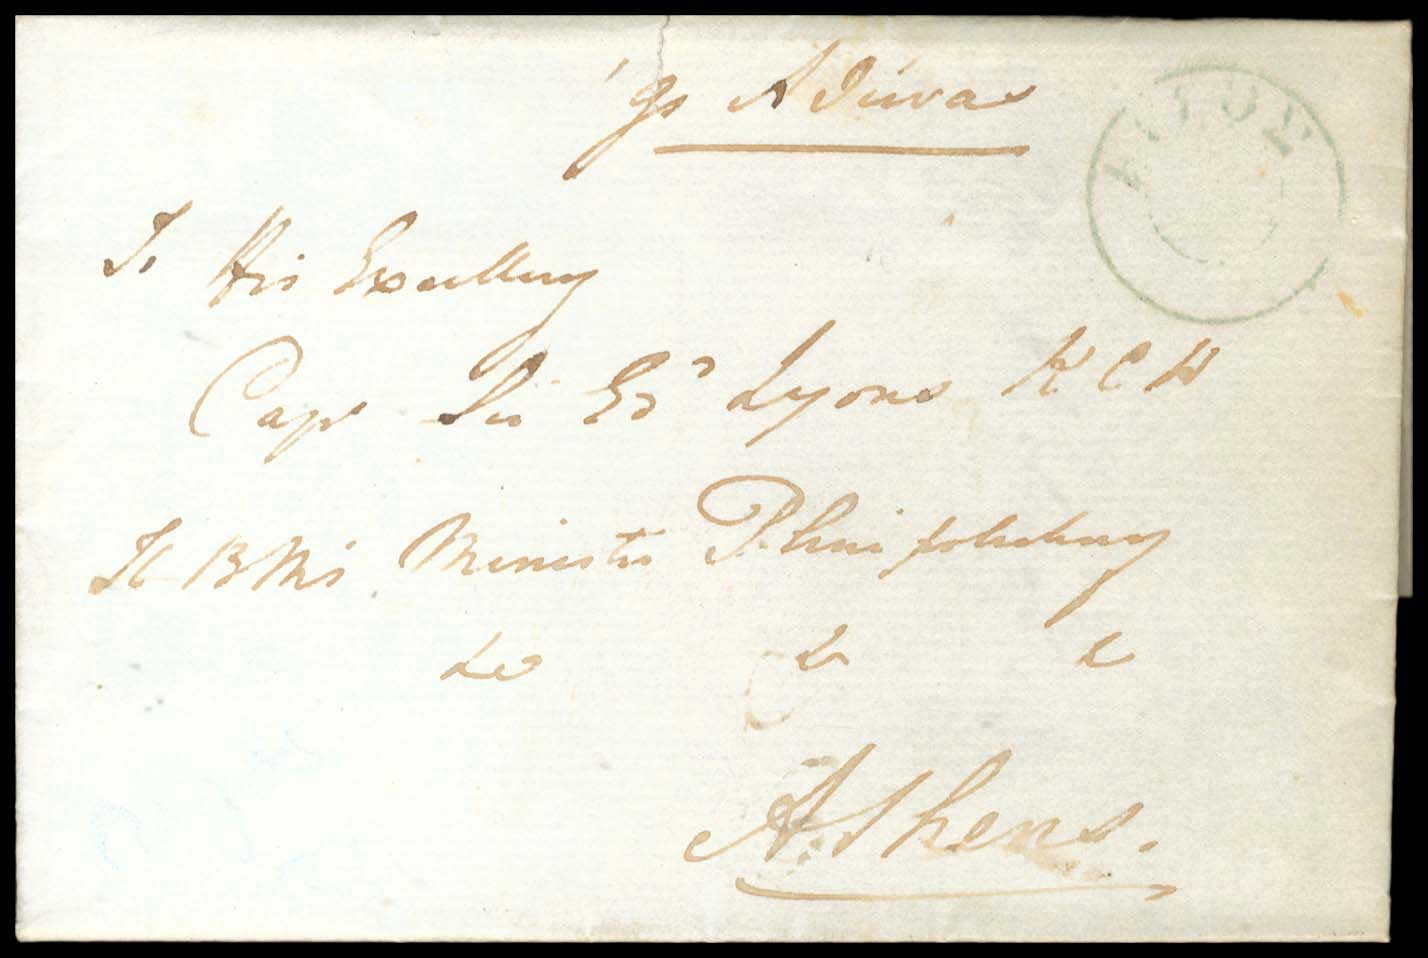 To His Excellency
Cap Sir Ed Lyons K C H
H B M's Minister Plenipotentiary
&c &c &c
Athens.